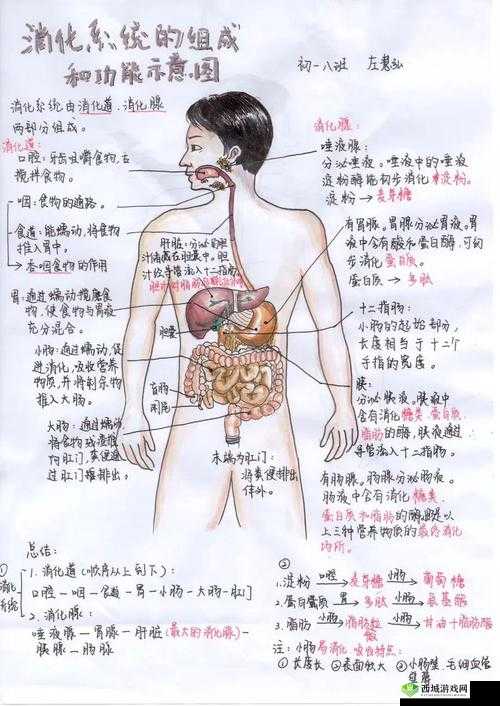 消化系统的组成
和功能示意图
初一八班
消化系统由消化道、消化腺
两部分组成。
消化道:
口腔:牙齿咀嚼食物,舌
搅拌食物。
咽:食物的通路。
食道:能蠕动,将食物
推入胃中。
吞咽食物的作用
胃:通过蠕动搅磨食
物,使食物与胃液
充分混合。
小肠:通过蠕动,促
进消化,吸收营养
物质,并将剩余物
推入大肠。
大肠:通过蠕动
将食物或粪便推
向肛门,粪便通
过肛门排出,
肝脏:分泌的胆
汁储藏在胆囊中。胆
汁经导管流入十二指肠,
胆囊
盲肠
阑尾
末端为肛门:
将粪便排出
体外。
消化腺:
唾液腺:
分泌唾液。唾液中的唾液
淀粉酶能初步消化淀粉。
淀粉→麦芽糖
有胃腺。胃腺分泌胃液。胃
液中含有酸和蛋白酶,可初
步消化蛋白质。
蛋白质→多肽
十二指肠:
小肠的起始部分,
长度相当于十二个
手指的宽度。
胰:
分泌胰液。胰液中
含有消化糖类、蛋白质、
脂肪的酶,胰液通过
导管流入十二指肠。
有肠腺。肠腺分泌肠液。
肠液中含有消化糖类、
蛋白质和脂肪的酶,是以
上三种营养物质的最终消化
场所。
总结:
①
消化系统
1. 消化道(顺序从上到下):
口腔—咽—食道—胃—小肠—大肠—肛门
2. 消化腺:
唾液腺—胃腺—肝脏(最大的消化腺)—
胰腺—肠腺
②
1. 淀粉 口腔→ 麦芽糖 小肠→ 葡萄糖
2. 蛋白质 胃→ 多肽 小肠→ 氨基酸
3. 脂肪 小肠→ 脂肪微粒 小肠→ 甘油+脂肪酸
注:小肠易消化吸收特点:
①长度长 ②表面积大 ③小肠壁、毛细血管
壁薄
西城游戏网